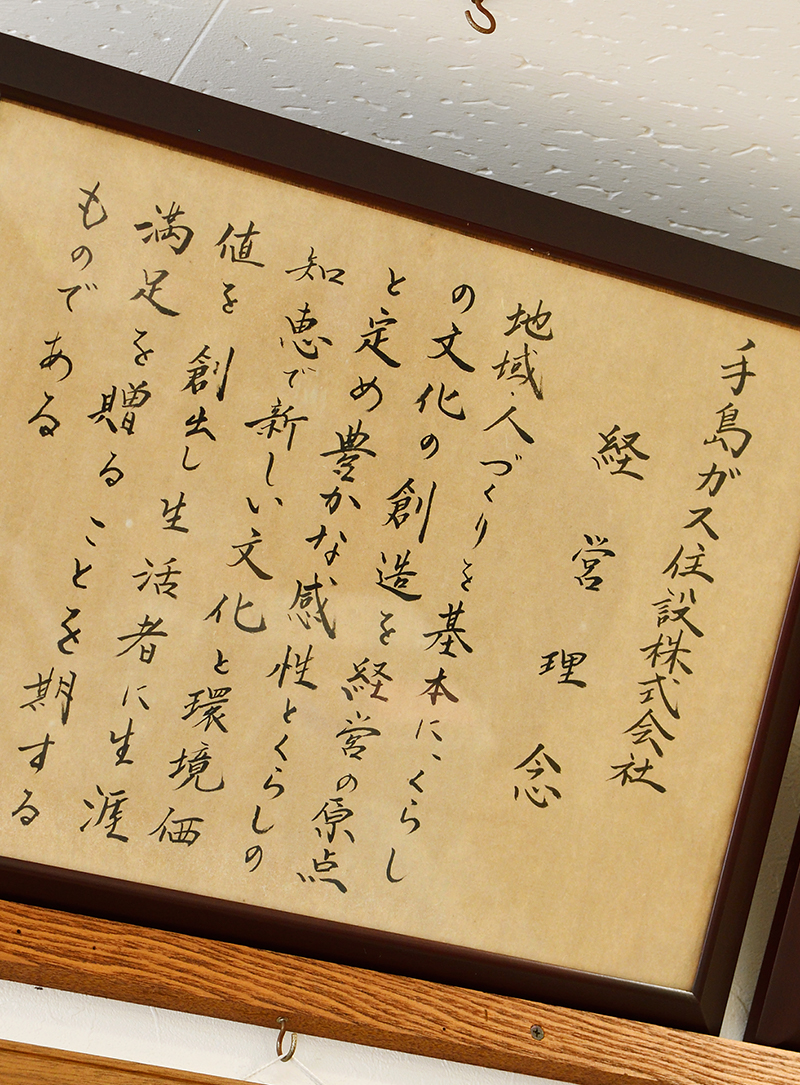 手島ガス住設株式会社
経営理念
地域・人づくりを基本にくらし
の文化の創造を経営の原点
と定め豊かな感性とくらしの
知恵で新しい文化と環境価
値を創出し生活者に生涯
満足を贈ることを期する
ものである